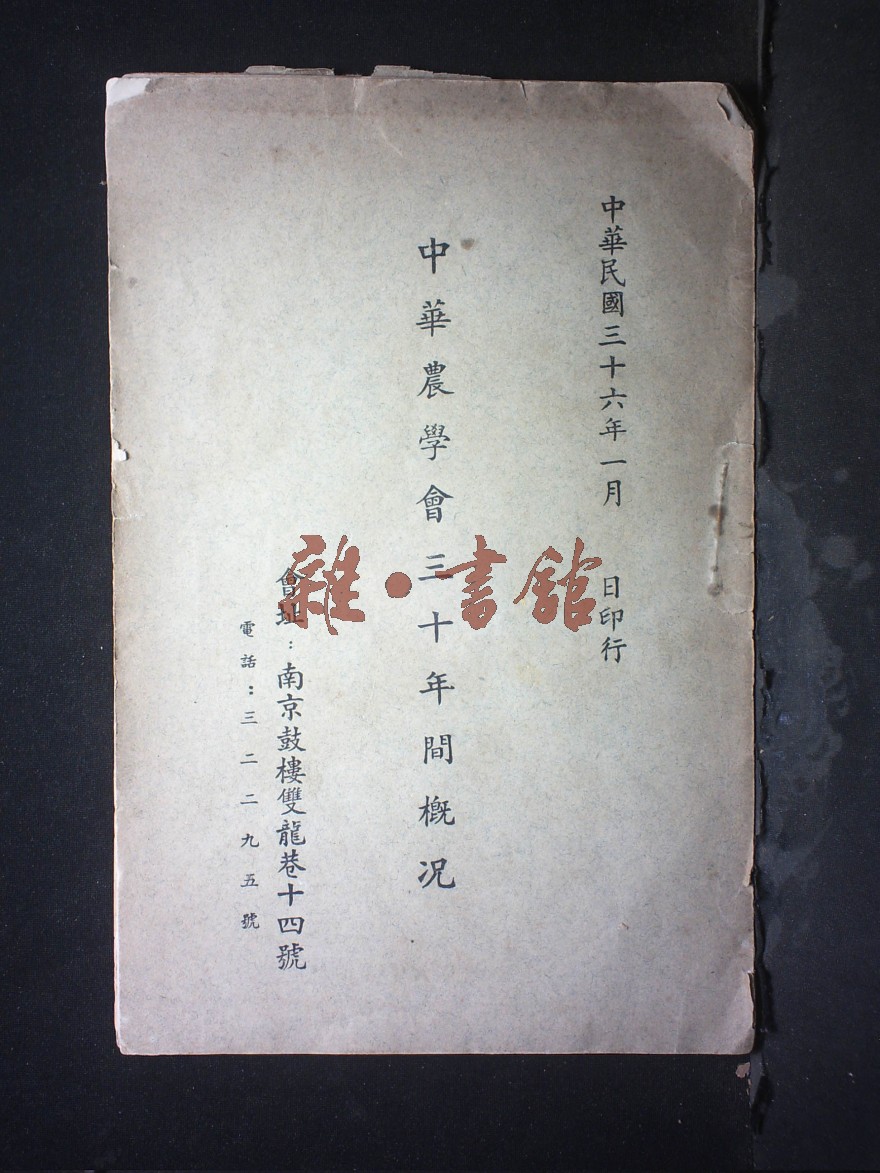 中華民國三十六年一月　日印行
中華農學會三十年間概況
會址：南京鼓樓雙龍巷十四號
電話：三二二九五號
雜·書館